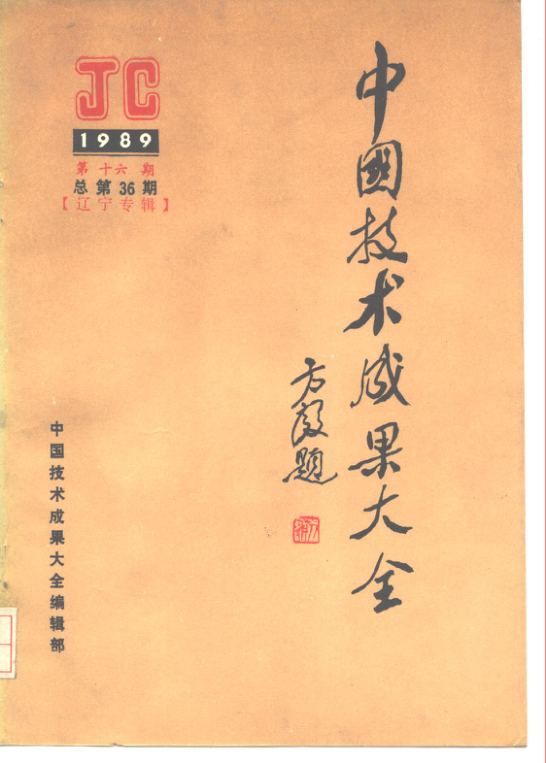 JC
1989
第十六期
总第36期
【辽宁专辑】
中國技术成果大全
方毅题
中国技术成果大全编辑部